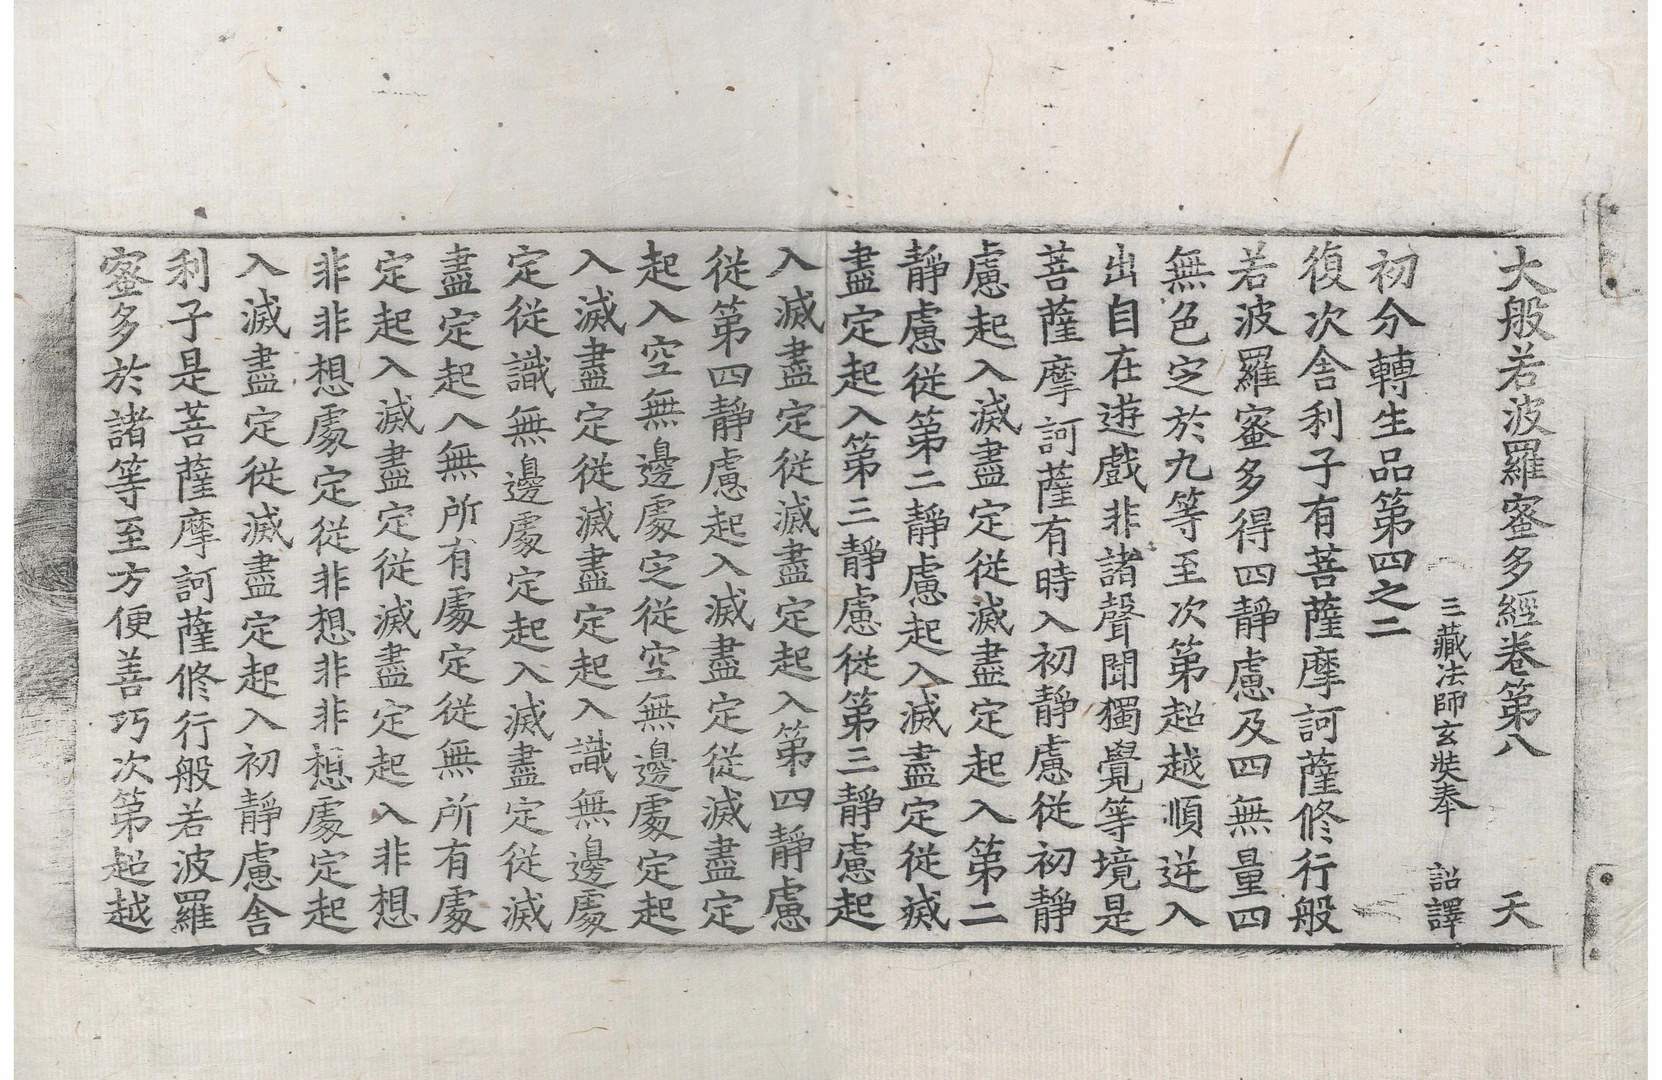 大般若波羅蜜多經卷第八 天
三藏法師玄奘奉 詔譯
初分轉生品第四之二
復次舍利子有菩薩摩訶薩修行般
若波羅蜜多得四靜慮及四無量四
無色定於九等至次第超越順逆入
出自在遊戲非諸聲聞獨覺等境是
菩薩摩訶薩有時入初靜慮從初靜
慮起入滅盡定從滅盡定起入第二
靜慮從第二靜慮起入滅盡定從滅
盡定起入第三靜慮從第三靜慮起
入滅盡定從滅盡定起入第四靜慮
從第四靜慮起入滅盡定從滅盡定
起入空無邊處定從空無邊處定起
入滅盡定從滅盡定起入識無邊處
定從識無邊處定起入滅盡定從滅
盡定起入無所有處定從無所有處
定起入滅盡定從滅盡定起入非想
非非想處定從非想非非想處定起
入滅盡定從滅盡定起入初靜慮舍
利子是菩薩摩訶薩修行般若波羅
蜜多於諸等至方便善巧次第超越